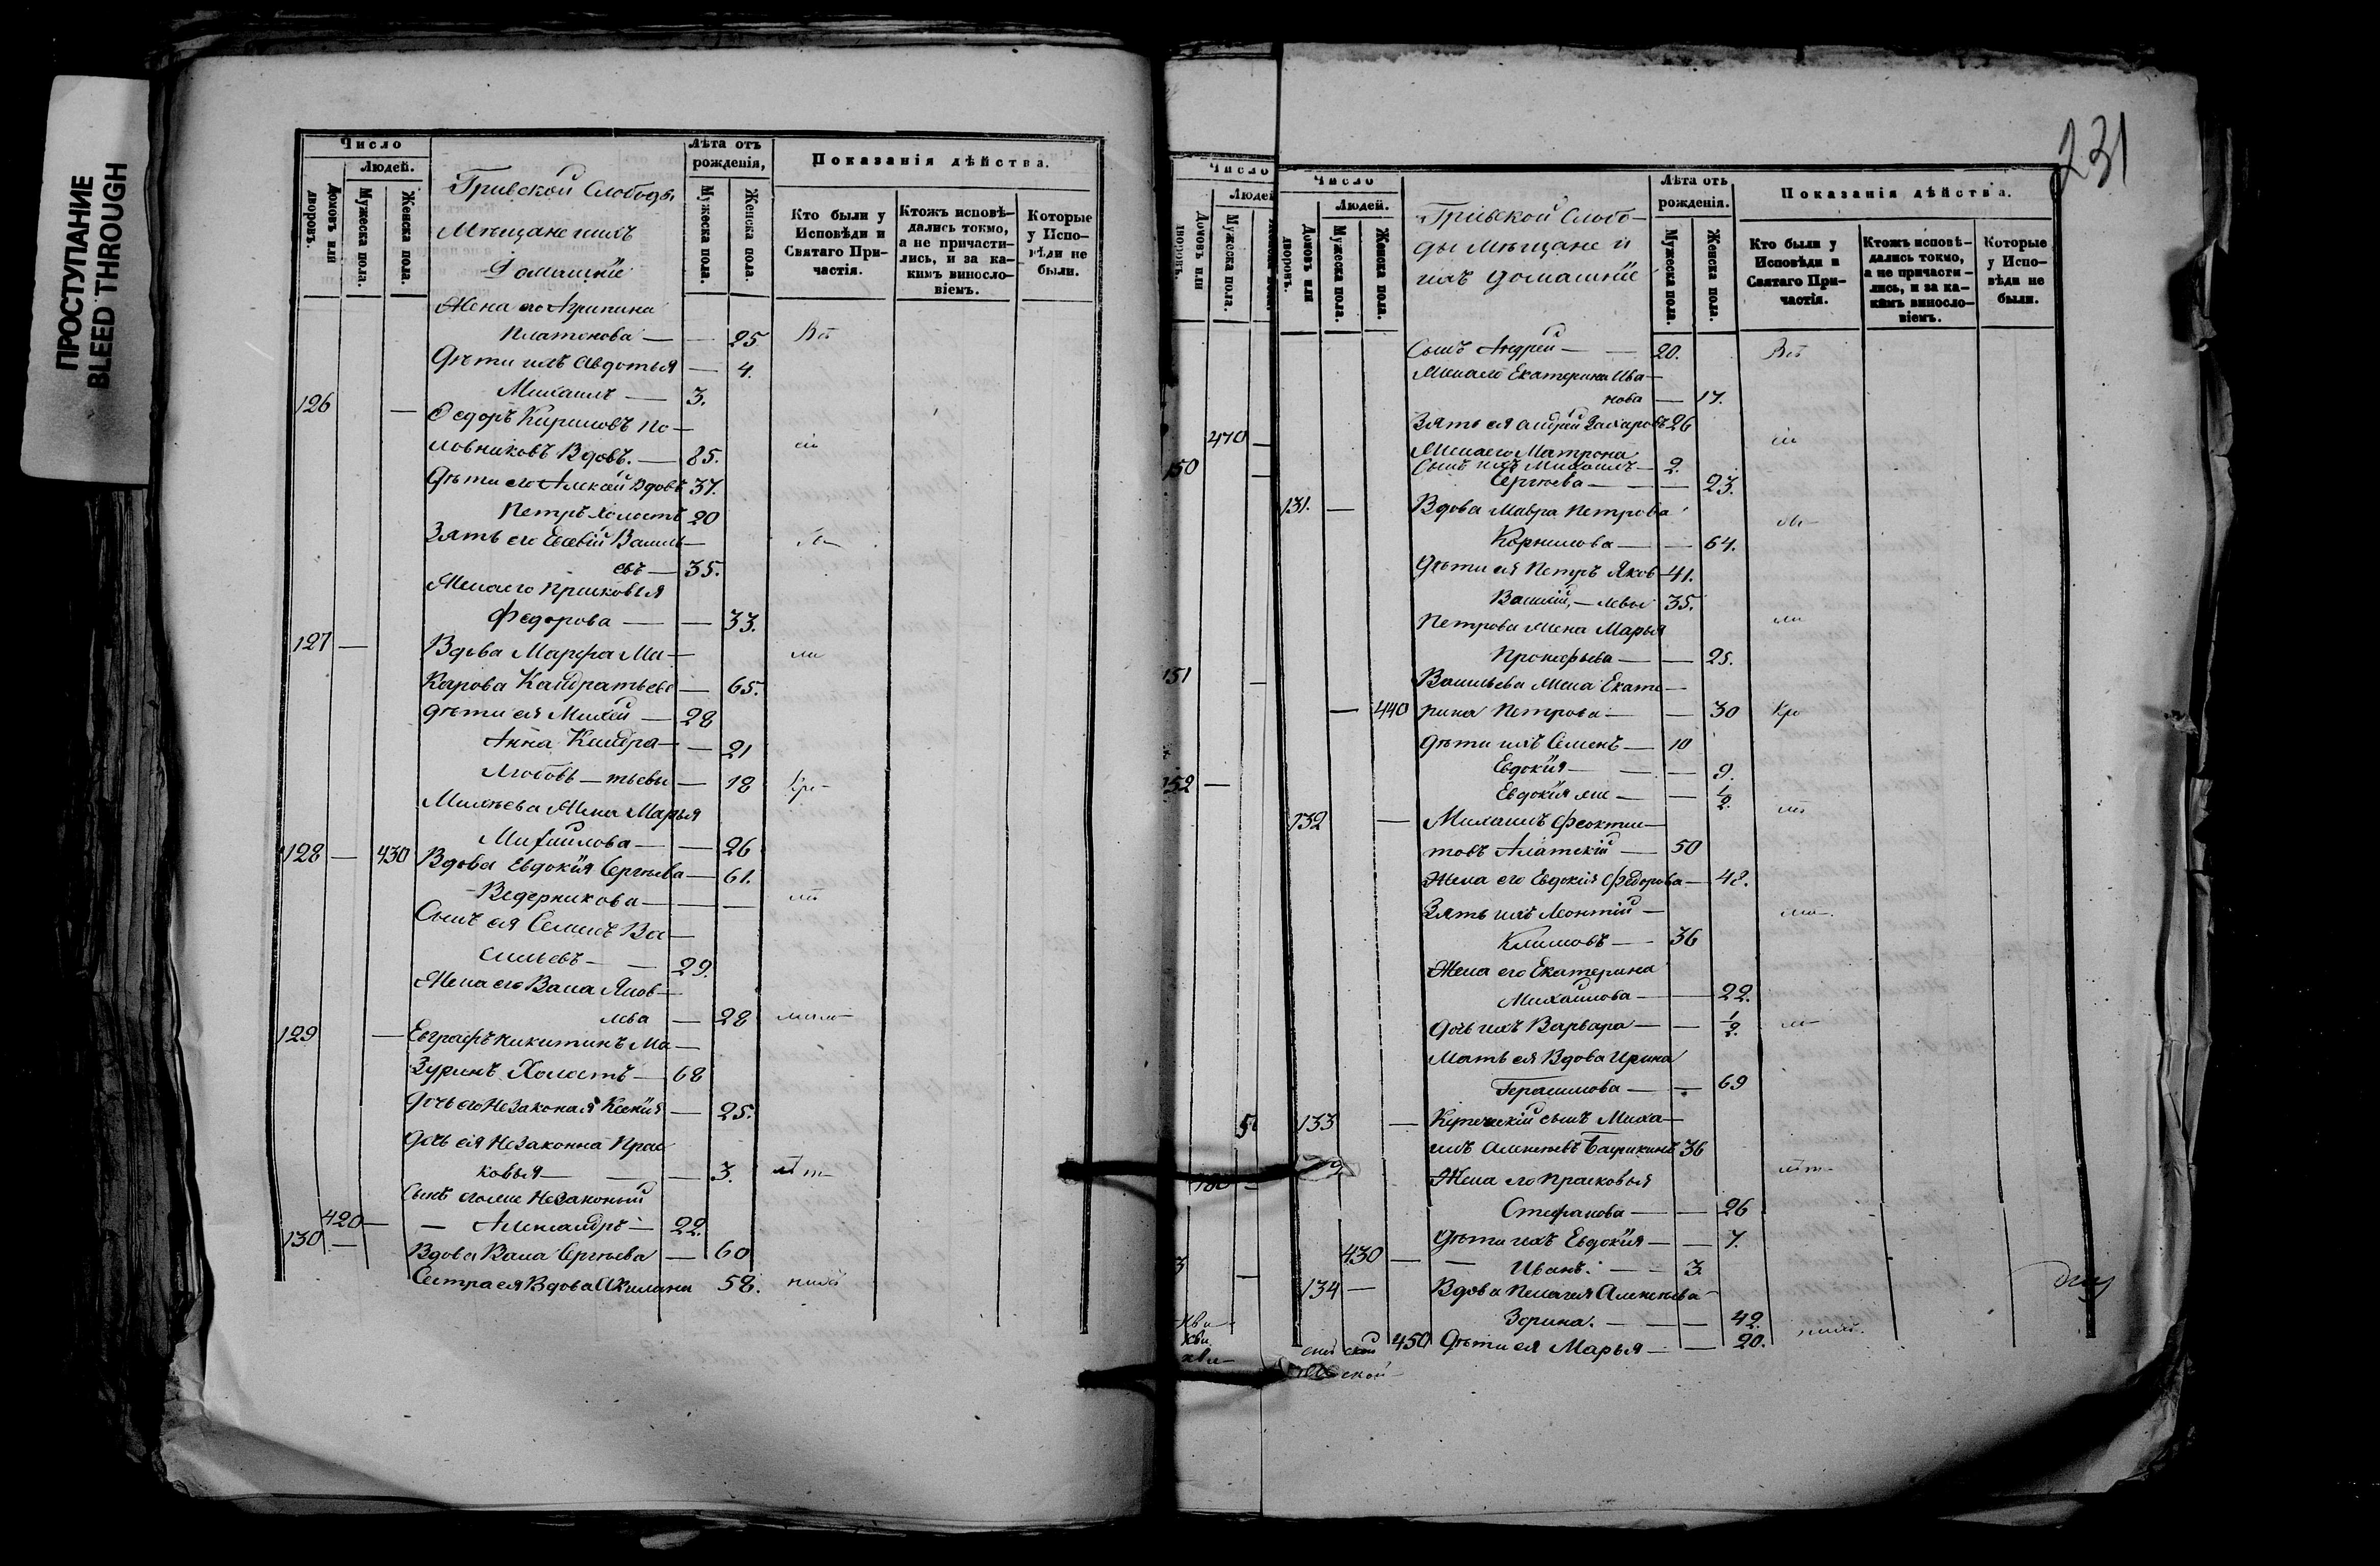 ПРОСТУПАНИЕ
BLEED THROUGH
Число
Людей.
Домовъ или дворовъ.
Мужеска пола.
Женска пола.
Гривской Слободы
Мѣщане ихъ
Домашніе
Лѣта отъ рожденія,
Мужеска пола.
Женска пола.
Показанія дѣйства.
Кто были у Исповѣди и Святаго Причастія.
Ктожъ исповѣдались токмо, а не причастились, и за какимъ винословіемъ.
Которые у Исповѣди не были.
Жена его Агрипина
Платонова — — 25.
Дѣти ихъ Авдотья — 4.
Михаилъ — 3.
126 — Федоръ Кириловъ По-
ловниковъ Вдовъ. — 85.
Дѣти его Алексѣй Вдовъ 37.
Петръ Холостъ 20
Зять его Евсевій Василь-
евъ — 35.
Жена его Прасковья
Федорова — — 33.
127 — Вдова Марфа Ма-
карова Кандратьева — 65.
Дѣти ея Михей — 28
Анна Кандра- — 21
Любовь — тьевы — 18
Михѣева Жена Марья
Михайлова — — 26
128 — 430 Вдова Евдокія Сергѣева — 61.
Ведерникова — — —
Сынъ ея Семенъ Ва-
сильевъ — — 29.
Жена его Васа Яков-
лева — 28
129 — Евграфъ Никитинъ Ма-
зуринъ Холостъ — 68
Дочь его Незаконая Ксенія — 25.
Дочь ея Незаконна Прас
ковья — — 3.
Сынъ его же Незаконый
420 — — Александръ — 22.
130 — Вдова Васа Сергѣева — 60
Сестра ея Вдова Акилина 58.
Число
Людей
Домовъ или дворовъ.
Мужеска пола.
470 —
150 —
151 —
152 —
231
Число
Людей.
Домовъ или дворовъ.
Мужеска пола.
Женска пола.
Гривской Слобо-
ды Мѣщане и
ихъ домашніе
Лѣта отъ рожденія.
Мужеска пола.
Женска пола.
Показанія дѣйства.
Кто были у Исповѣди и Святаго Причастія.
Ктожъ исповѣдались токмо, а не причастились, и за какимъ винословіемъ.
Которые у Исповѣди не были.
Сынъ Андрей — — 20.
Жена его Екатерина Ива-
нова — 17.
Зять ея Андрей Захаровъ 26
Жена его Матрона
Сынъ ихъ Михаилъ — 2.
Сергѣева — — — 23.
131. — Вдова Мавра Петрова
Корнилова — — 64.
Дѣти ея Петръ Яков- 41.
Василій, — левы 35.
Петрова Жена Марья
Прокофьева — — 25.
Васильева Жена Екате-
— 440 рина Петрова — — 30
Дѣти ихъ Семенъ — 10
Евдокія — — — 9.
Евдокія же — — 1/2.
132 — Михаилъ Феоктис-
товъ Азіатскій — 50
Жена его Евдокія Федорова — 48.
Зять ихъ Леонтій —
Климовъ — 36
Жена его Екатерина
Михайлова — — 22.
Дочь ихъ Варвара — — 1/2.
Мать ея Вдова Ирина
Герасимова — — 69
133 — сынъ Миха-
илъ Алексѣевъ 36
Жена его Прасковья
Стефанова — — 26
Дѣти ихъ Евдокія — — 7.
430 — — Иванъ. — — 3.
134 — Вдова Пелагея Алексѣева
Зорина. — — — 42.
450 Дѣти ея Марья — — 20.